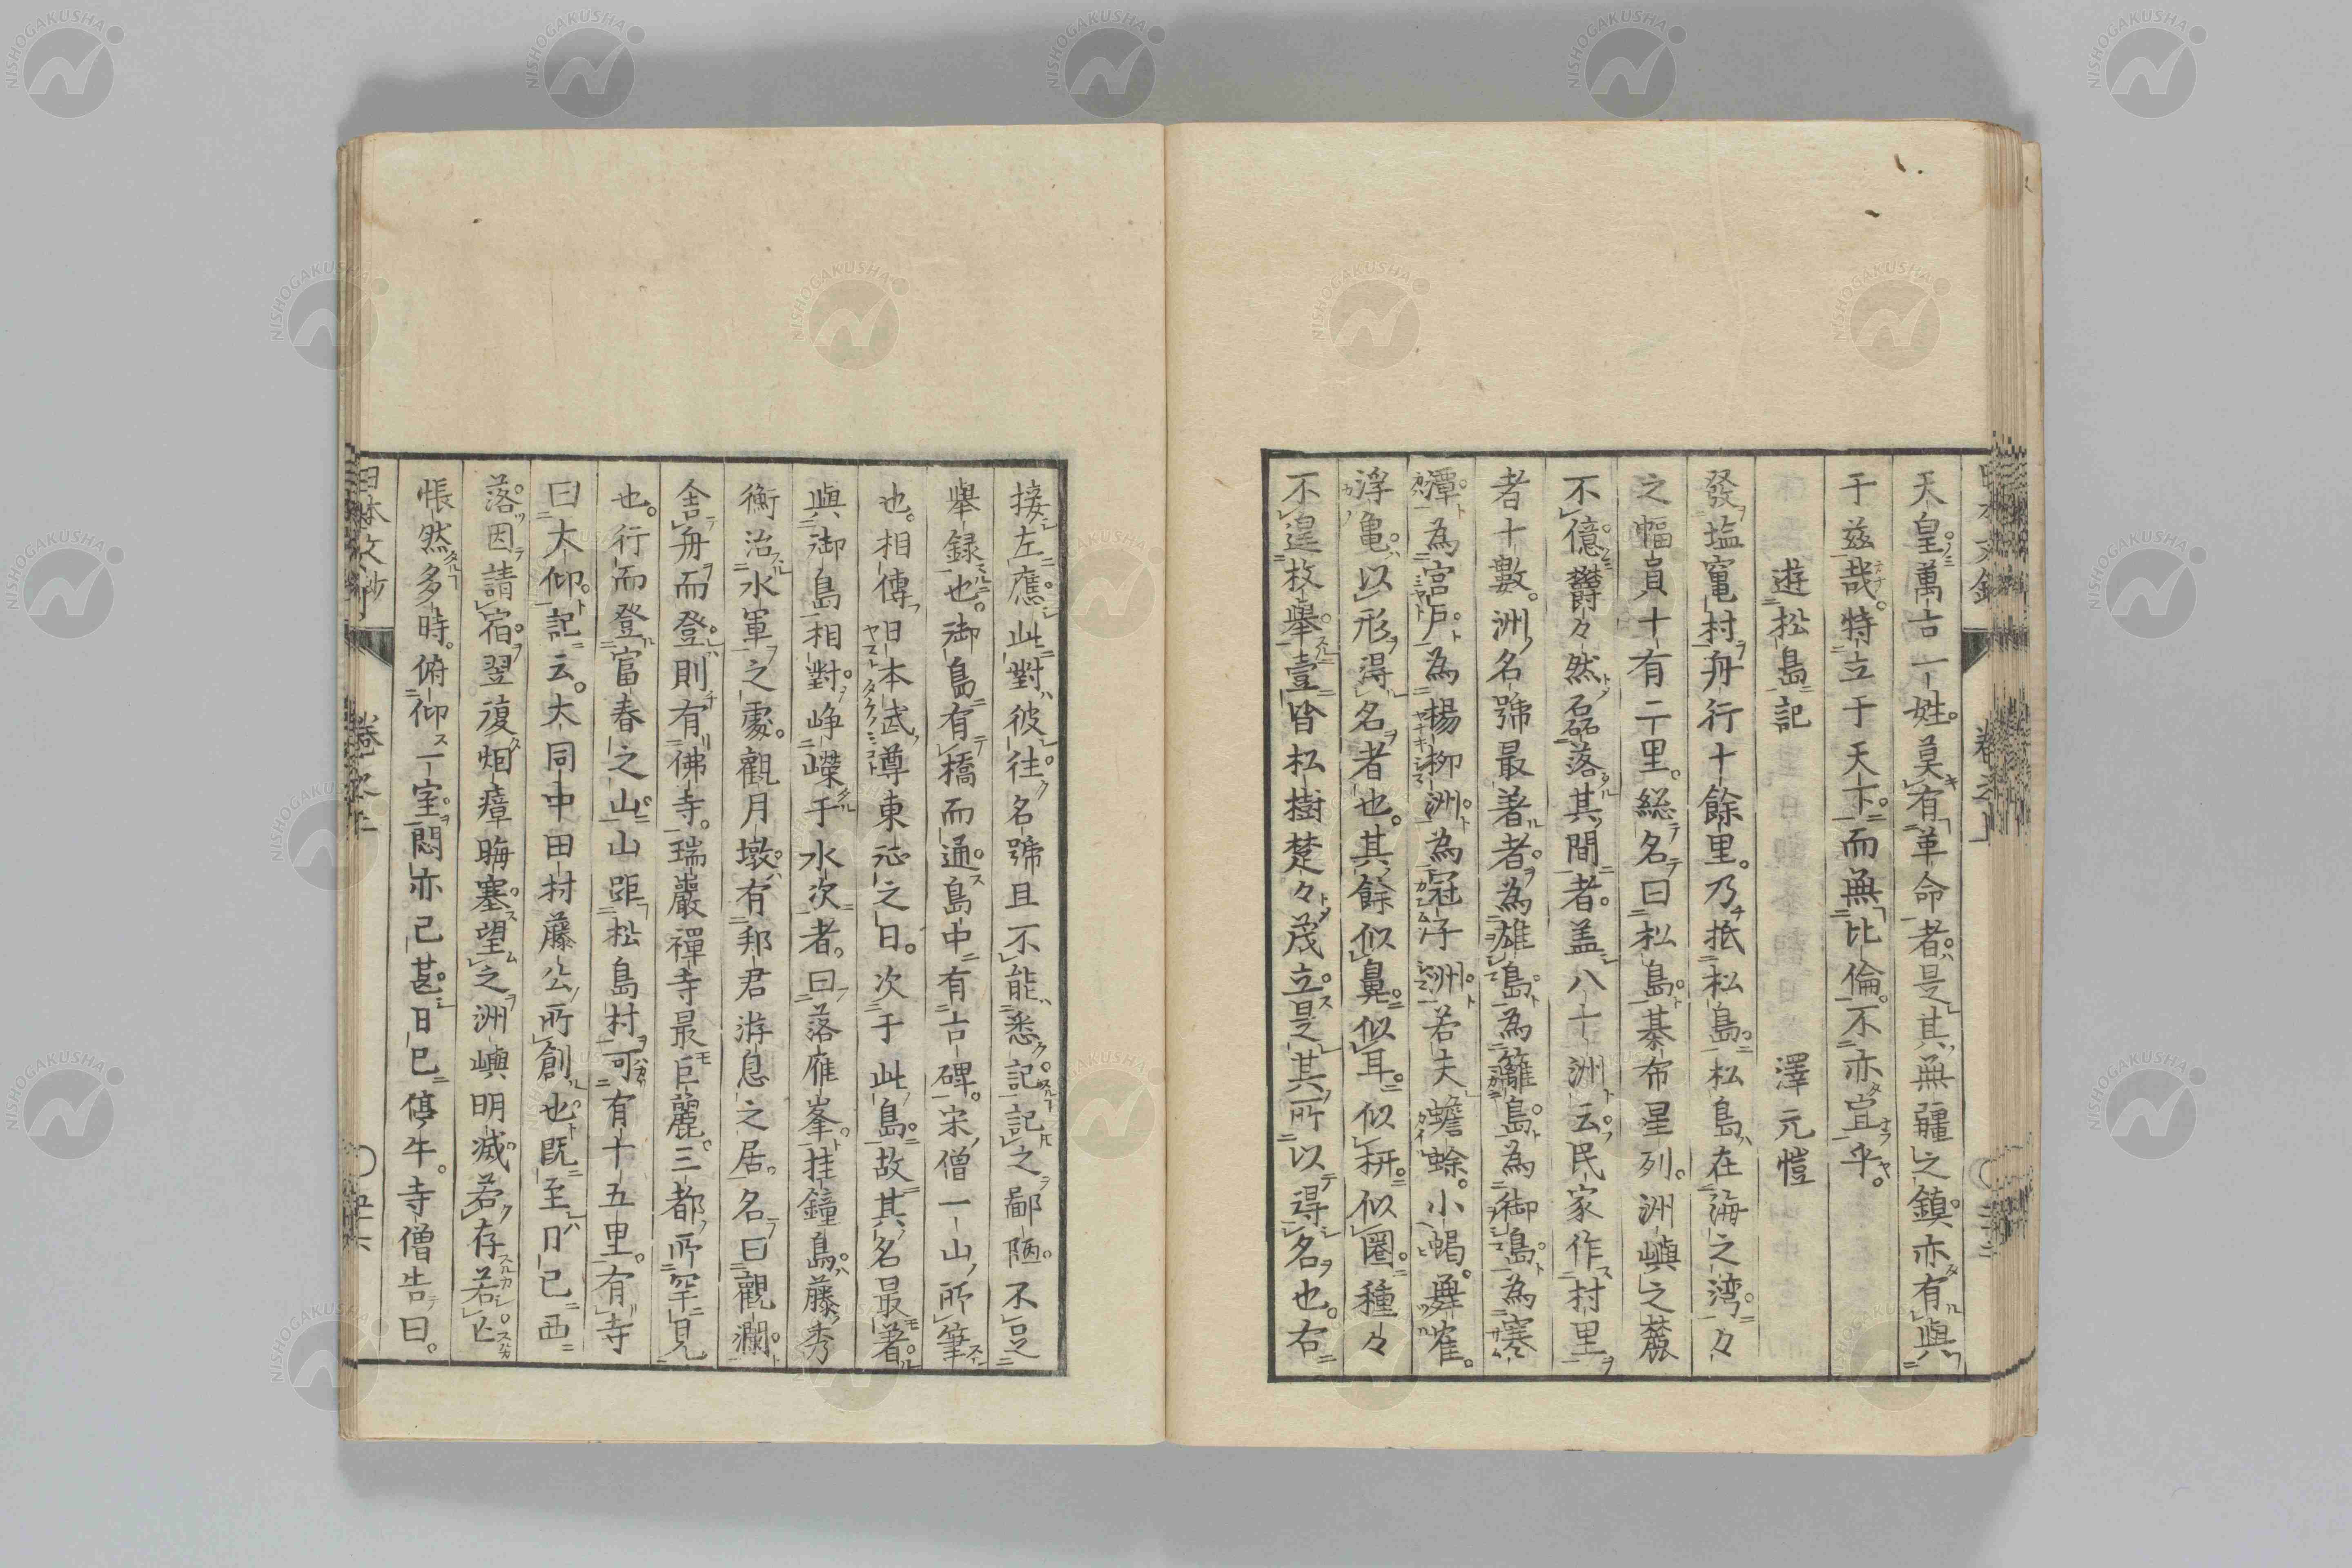 天皇萬古一姓。莫有革命者。是其無疆之鎮。亦有與
于玆哉。特立于天下。而無比倫。不亦宜乎。
遊松島記 澤元愷
發塩竃村舟行十餘里。乃抵松島。松島在海之湾。々
之幅員十有二里。総名曰松島。棊布星列。洲嶼之麓
不億。欝々然磊落其間者。盖八十洲云。民家作村里
者十數。洲名號最著者。為雄島。為籬島。為御島。為寒
潭。為宮戸。為楊柳洲。為冠子洲。若夫蟾蜍。小蝎。舞雀。
浮亀。以形得名者也。其餘似鼻。似耳。似栟。似圏。種々
不遑枚舉。壹皆松樹楚々茂立。是其所以得名也。右
接左應。此對彼往。名號且不能悉記。記之鄙陋。不足
舉録也。御島有橋而通。島中有古碑。宋僧一山所筆
也。相傳日本武尊東征之日。次于此島。故其名最著。
與御島相對。峥嶸于水次者。曰落雁峯。挂鐘島。藤秀
衡治水軍之處。觀月墩。有邦君游息之居。名曰觀瀾。
舎舟而登。則有佛寺。瑞巖禪寺最巨麗。三都所罕見
也。行而登富春之山。山距松島村可有十五里。有寺
曰大仰記云。大同中田村藤公所創也。既至日已西
落。因請宿。翌復烟瘴晦塞。望之洲嶼明滅。若存若亡
悵然多時。俯仰一室。悶亦已甚。日已停午。寺僧告曰。
日本文鈔 卷之上